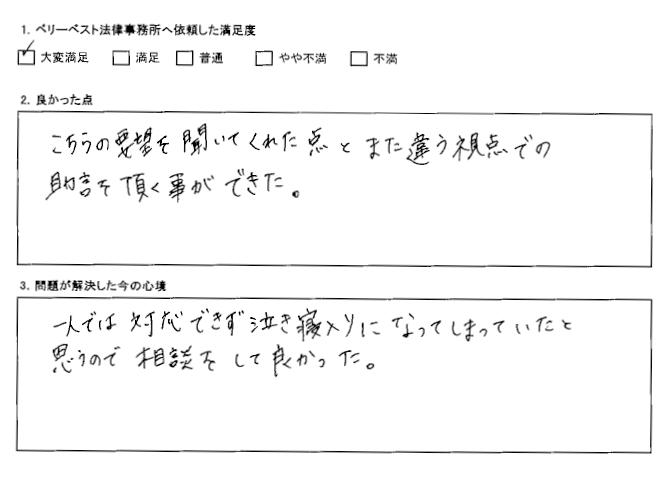 1. ベリーベスト法律事務所へ依頼した満足度
☑ 大変満足 □ 満足 □ 普通 □ やや不満 □ 不満
2. 良かった点
こちらの要望を聞いてくれた点とまた違う視点での
助言を頂く事ができた。
3. 問題が解決した今の心境
一人では対応できず泣き寝入りになってしまっていたと
思うので相談をして良かった。